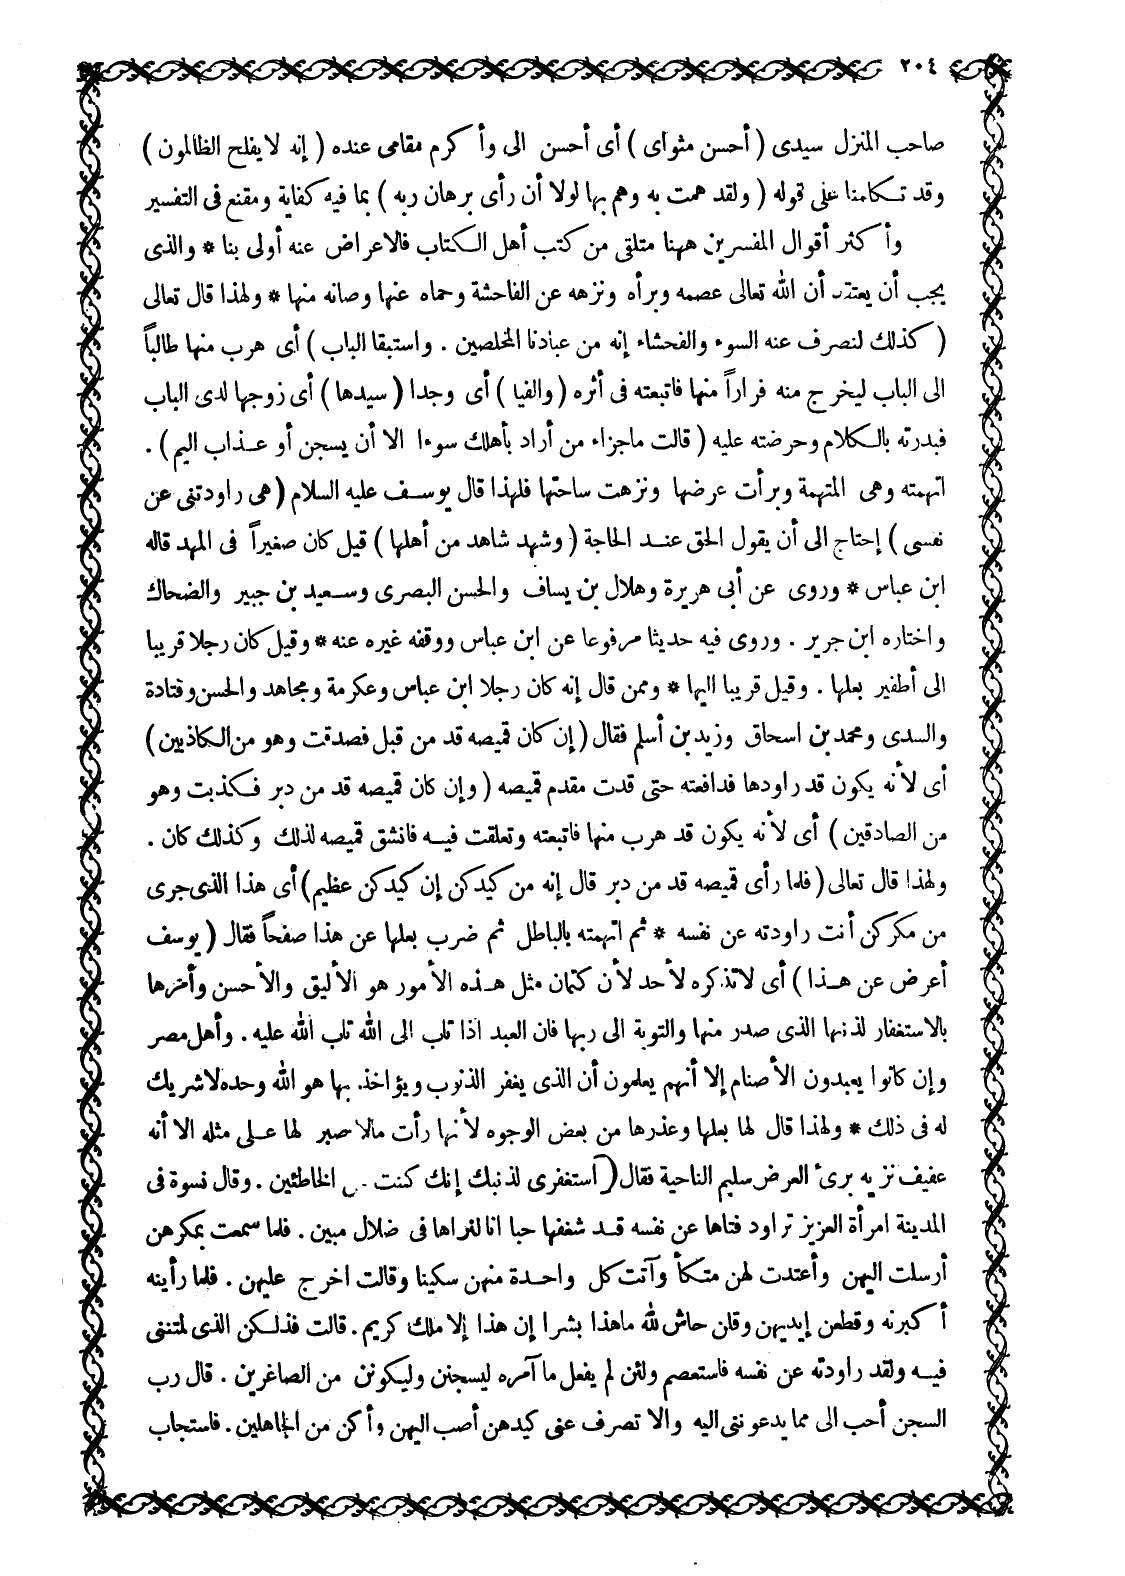 ٢٠٤
صاحب المنزل سيدى ( أحسن مثواى ) أى أحسن الى وأكرم مقامى عنده ( إنه لا يفلح الظالمون )
وقد تكلمنا على قوله ( ولقد همت به وهم بها لولا أن رأى برهان ربه ) بما فيه كفاية ومقنع فى التفسير
وأكثر أقوال المفسرين ههنا متلقى من كتب أهل الكتاب فالاعراض عنه أولى بنا * والذى
يجب أن يعتقد أن الله تعالى عصمه وبرأه ونزهه عن الفاحشة وحماه عنها وصانه منها * ولهذا قال تعالى
( كذلك لنصرف عنه السوء والفحشاء إنه من عبادنا المخلصين . واستبقا الباب ) أى هرب منها طالباً
الى الباب ليخرج منه فراراً منها فاتبعته فى أثره ( والفيا ) أى وجدا ( سيدها ) أى زوجها لدى الباب
فبدرته بالكلام وحرضته عليه ( قالت ماجزاء من أراد بأهلك سوءا الا أن يسجن أو عذاب اليم ) .
اتهمته وهى المتهمة وبرأت عرضها ونزهت ساحتها فلهذا قال يوسف عليه السلام ( هى راودتنى عن
نفسى ) إحتاج الى أن يقول الحق عند الحاجة ( وشهد شاهد من أهلها ) قيل كان صغيراً فى المهد قاله
ابن عباس * وروى عن أبى هريرة وهلال بن يساف والحسن البصرى وسعيد بن جبير والضحاك
واختاره ابن جرير . وروى فيه حديثا مرفوعا عن ابن عباس ووقفه غيره عنه * وقيل كان رجلا قريبا
الى أطفير بعلها . وقيل قريبا اليها * وممن قال إنه كان رجلا ابن عباس وعكرمة ومجاهد والحسن وقتادة
والسدى ومحمد بن اسحاق وزيد بن أسلم فقال ( إن كان قميصه قد من قبل فصدقت وهو من الكاذبين )
أى لأنه يكون قد راودها فدافعته حتى قدت مقدم قميصه ( وإن كان قميصه قد من دبر فكذبت وهو
من الصادقين ) أى لأنه يكون قد هرب منها فاتبعته وتعلقت فيه فانشق قميصه لذلك وكذلك كان .
ولهذا قال تعالى ( فلما رأى قميصه قد من دبر قال إنه من كيدكن إن كيدكن عظيم ) أى هذا الذى جرى
من مكركن أنت راودته عن نفسه * ثم اتهمته بالباطل ثم ضرب بعلها عن هذا صفحاً فقال ( يوسف
أعرض عن هذا ) أى لاتذكره لأحد لأن كتمان مثل هذه الأمور هو الأليق والأحسن وأمرها
بالاستغفار لذنبها الذى صدر منها والتوبة الى ربها فان العبد اذا تاب الى الله تاب الله عليه . وأهل مصر
وإن كانوا يعبدون الأصنام إلا أنهم يعلمون أن الذى يغفر الذنوب ويؤاخذ بها هو الله وحده لا شريك
له فى ذلك * ولهذا قال لها بعلها وعذرها من بعض الوجوه لأنها رأت مالا صبر لها على مثله الا أنه
عفيف نزيه برىء العرض سليم الناحية فقال ( استغفرى لذنبك إنك كنت من الخاطئين . وقال نسوة فى
المدينة امرأة العزيز تراود فتاها عن نفسه قد شغفها حبا انا لنراها فى ضلال مبين . فلما سمعت بمكرهن
أرسلت اليهن وأعتدت لهن متكأ وآتت كل واحدة منهن سكينا وقالت اخرج عليهن . فلما رأينه
أكبرنه وقطعن إيديهن وقلن حاش لله ماهذا بشرا إن هذا إلا ملك كريم . قالت فذلكن الذى لمتننى
فيه ولقد راودته عن نفسه فاستعصم ولئن لم يفعل ما آمره ليسجنن وليكونن من الصاغرين . قال رب
السجن أحب الى مما يدعوننى اليه والا تصرف عنى كيدهن أصب اليهن وأكن من الجاهلين . فاستجاب